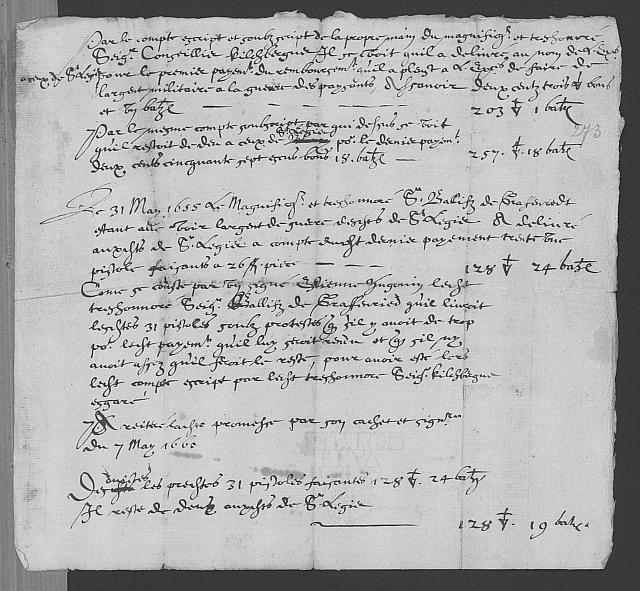 Par le compte escript et soubscript de la propre main du magnifiq. et treshonnoré
Seigr. Conseillier Kilchberguer Il se voit quil a delivré au nom de L. Exces
a ceux de St. Legier pour le premier payemt. du remboursemt. quil a pleut a L. Exces de faire de
largent militaire a la guerre des paysants, Asscavoir deux cents trois bons
et un batz 203 1 batz
Par le mesme compte soubscript par qui dessus se voit 273
quil restoit de deu a ceux de St. Legier po. le dernier payemt.
deux cents cinquante sept escus bons 18. batz 257. 18 batz
Le 31 May 1655 Le Magnifiq. et treshonnoré Sr. Ballif de Graffenriedt
estant allé voir largent de guerre desdts de St. Legier A delivré
auxdts de St. Legier a compte dudt dernier payement trente une
pistole faisants a 26 ff. piece 128 24 batz
Come se conste par un signé Estienne Hugonin ledt
treshonnoré Seigr. Ballif de Graffenried quil livroit
lesdtes 31 pistoles soubz protestes q sil y avoit de trop
po. ledt payemt. quil luy seroit rendu et q sil ny
avoit assez quil feroit le reste, pour avoir esté lors
ledt compte escript par ledt treshonnoré Seigr. Kilchbergue
esgaré
A reiteré ladte promesse par son cachet et signé
du 7 May 1660
les predtes 31 pistoles faisantes 128. 24 batz
Il reste de deub auxdts de St. Legier
128. 19 batz.